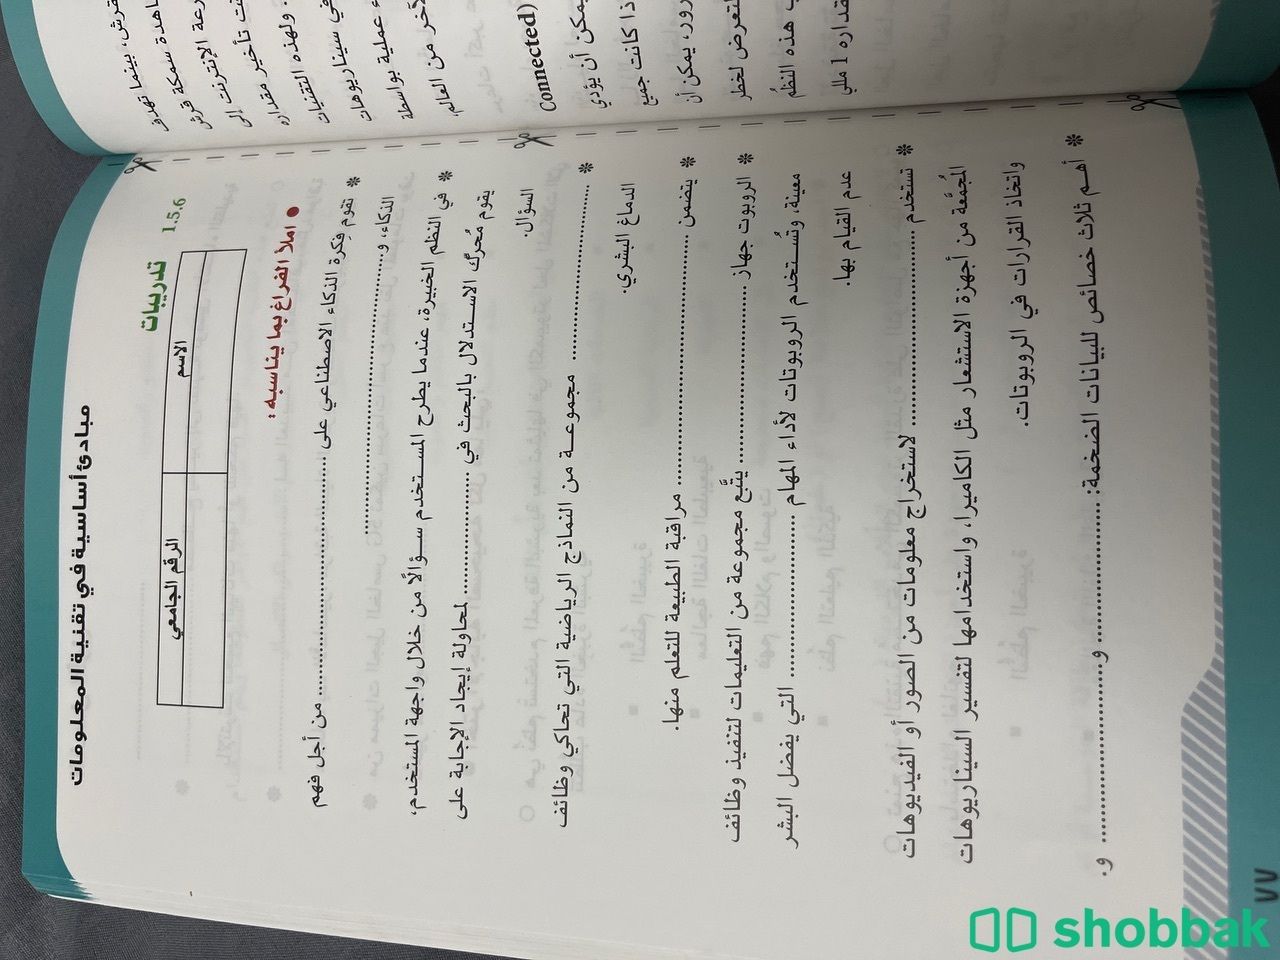 مبادئ أساسية في تقنية المعلومات
تدريبات 1.5.6
الاسم الرقم الجامعي
● املأ الفراغ بما يناسبه:
* تقوم فكرة الذكاء الاصطناعي على ........................ من أجل فهم
الذكاء، و........................
* في النظم الخبيرة، عندما يطرح المستخدم سؤالًا من خلال واجهة المستخدم،
يقوم مُحرك الاستدلال بالبحث في ........................ لمحاولة إيجاد الإجابة على
السؤال.
* ........................ مجموعة من النماذج الرياضية التي تحاكي وظائف
الدماغ البشري.
* يتضمن ........................ مراقبة الطبيعة للتعلم منها.
* الروبوت جهاز ........................ يتَّبع مجموعة من التعليمات لتنفيذ وظائف
معينة، وتُستخدم الروبوتات لأداء المهام ........................ التي يفضل البشر
عدم القيام بها.
* تستخدم ........................ لاستخراج معلومات من الصور أو الفيديوهات
المُجمَّعة من أجهزة الاستشعار مثل الكاميرا، واستخدامها لتفسير السيناريوهات
واتخاذ القرارات في الروبوتات.
* أهم ثلاث خصائص للبيانات الضخمة: ........................ و........................ و.
٧٧
قرش، بينما تهدف
ساهدة سمكة قرش
رعة الإنترنت إلى
تأخير مقداره
ولهذه التقنيات
في سيناريوهات
عملية بواسطة
لآخر من العالم.
Connected)
يمكن أن يؤدي
ذا كانت جميع
رور، يمكن أن
لتعرض لخطر
هذه النظم
قداره 1 مللي
shobbak